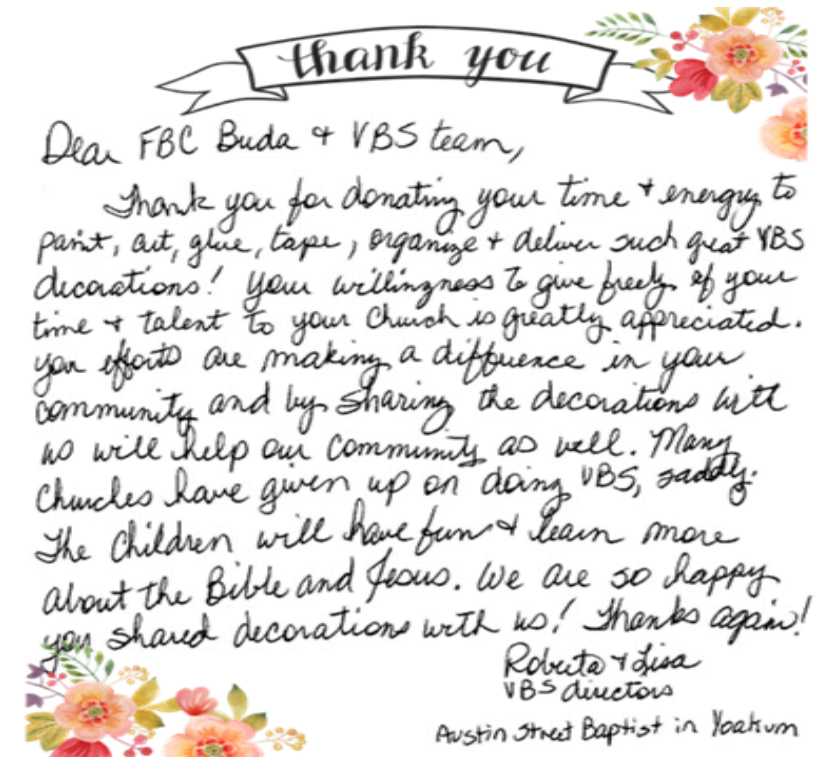 thank you
Dear FBC Buda + VBS team,
Thank you for donating your time + energy to
paint, cut, glue, tape, organize + deliver such great VBS
decorations! Your willingness to give freely of your
time + talent to your Church is greatly appreciated.
your efforts are making a difference in your
community and by sharing the decorations with
us will help our community as well. Many
Churches have given up on doing VBS, sadly.
The Children will have fun + learn more
about the Bible and Jesus. We are so happy
you shared decorations with us! Thanks again!
Roberta + Lisa
VBS directors
Austin Street Baptist in Yoakum